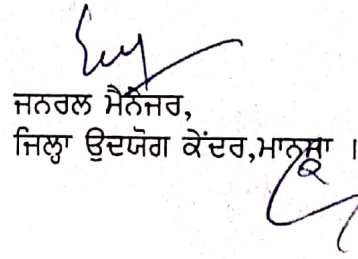 ਜਨਰਲ ਮੈਨੇਜਰ,
ਜਿਲ੍ਹਾ ਉਦਯੋਗ ਕੇਂਦਰ,ਮਾਨਸਾ ।